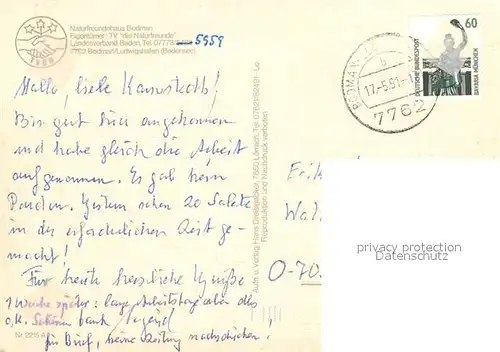 Naturfreundehaus Bodman
Eigentümer: TV "die Naturfreunde"
Landesverband Baden, Tel. 07773/ 5959
7762 Bodman/Ludwigshafen (Bodensee)
Hallo, liebe
Bin gut hier angekommen
und habe gleich die Arbeit
aufgenommen. Es gab kein
Pardon. Gestern schon 20 Salate
in der erforderlichen Zeit ge-
macht!
Für heute herzliche Grüße
1 Woche später: lange Arbeitstage aber alles
o.k. Schönen Dank
für Brief, keine Zeitung nachschicken!
Nr. 2215
Aufn. u. Verlag: Hans 7850 Lörrach, Tel.
Reproduktion und Nachdruck verboten
BODMAN-
b
17.-5.91-
7762
60
DEUTSCHE BUNDESPOST
BAVARIA MÜNCHEN
Wal
O-70
privacy protection
Datenschutz